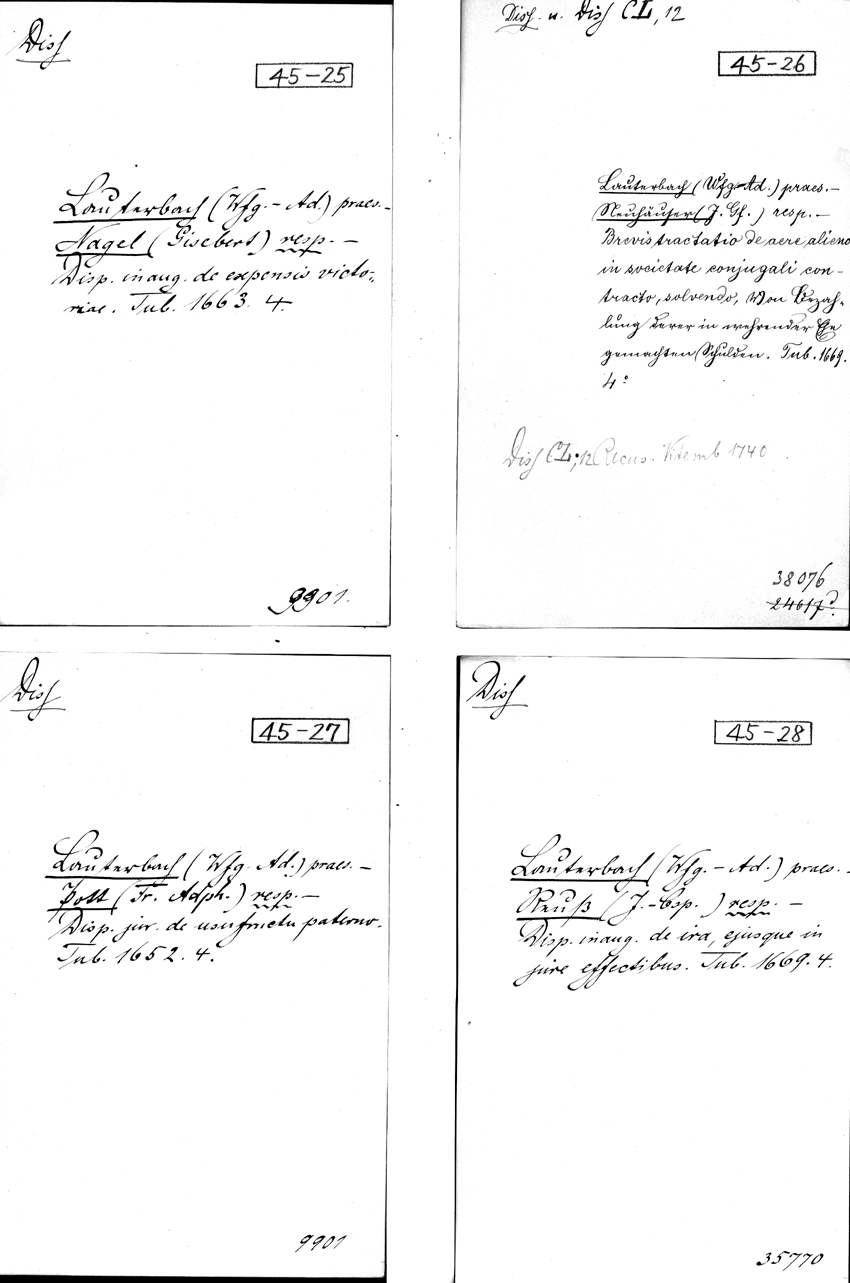 Diss
45-25
Lauterbach (Wfg.- Ad.) praes.-
Nagel (Gisebert) resp. -
Disp. inaug. de expensis victo-
riae. Tub. 1663. 4.
9901.
Diss. u. Diss CL, 12
45-26
Lauterbach (Wfg-Ad.) praes.-
Neuhäuser (J. Gf.) resp.-
Brevis tractatio de aere alieno
in societate conjugali con-
tracto, solvendo, Von Bezah-
lung derer in wehrender Ehe
gemachten Schulden. Tub. 1669.
4°
Diss CL, 12 Recus. Vitemb 1740
38076
24617
Diss
45-27
Lauterbach (Wfg. Ad.) praes. -
Pott (Fr. Adph.) resp. -
Disp. jur. de usufructu paterno.
Tub. 1652. 4.
9901
Diss
45-28
Lauterbach (Wfg. - Ad.) praes. -
Reuß (J.-Csp.) resp. -
Disp. inaug. de ira, ejusque in
jure effectibus. Tub. 1669. 4.
35770